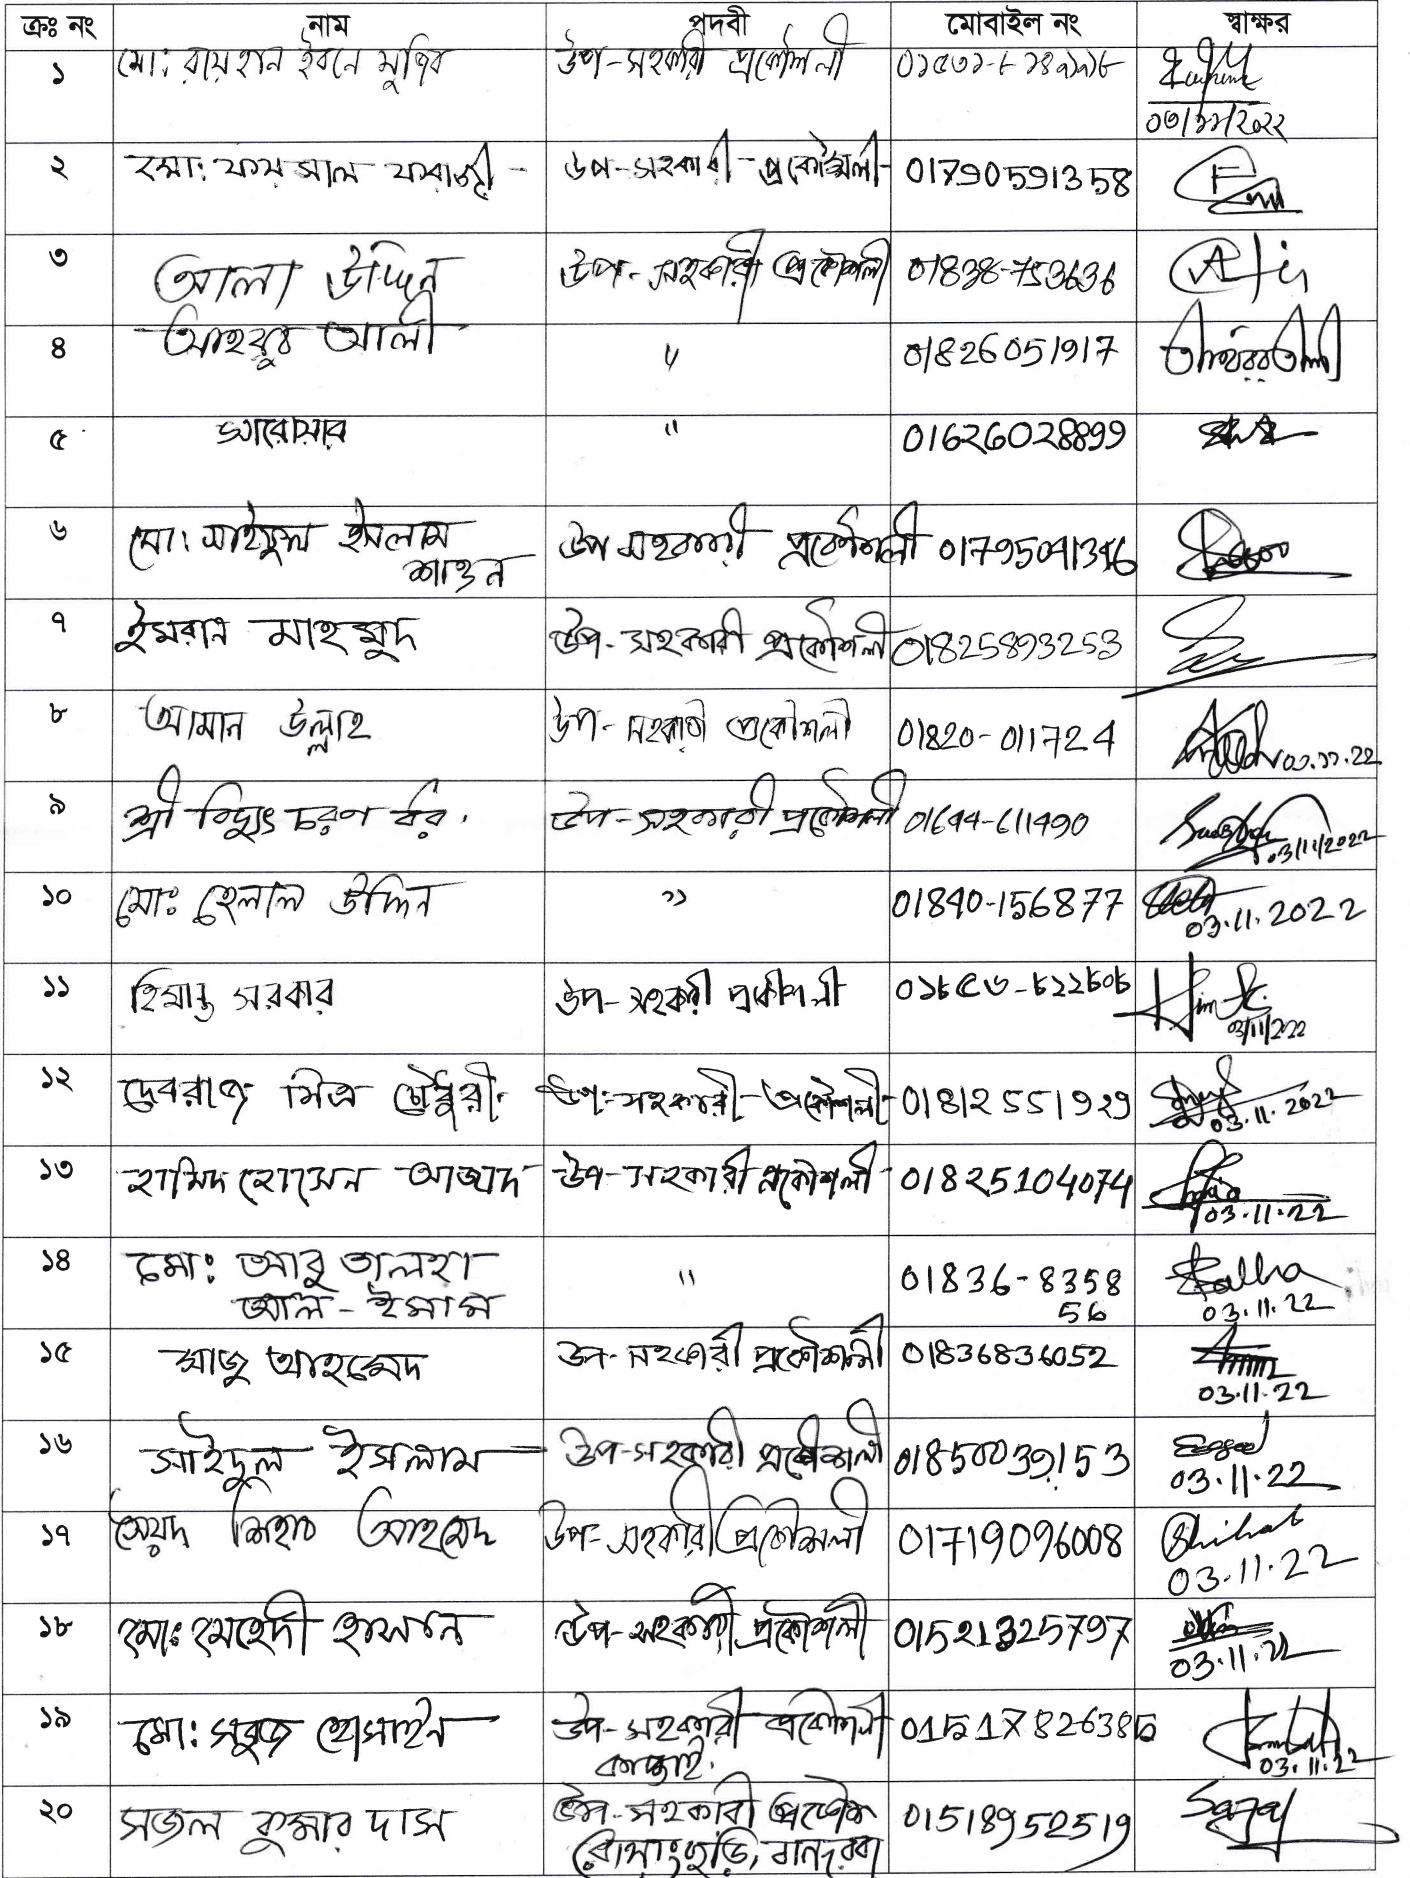 ক্রঃ নং নাম পদবী মোবাইল নং স্বাক্ষর
১ মো: রায়হান ইবনে মুজিব উপ-সহকারী প্রকৌশলী
০৩/১১/২০২২
২ মো: ফয়সাল ফরাজী উপ-সহকারী প্রকৌশলী 01790591358
৩ আলা উদ্দিন উপ-সহকারী প্রকৌশলী 01838-753636
৪ আলী " 01826051917
৫ সারোয়ার " 01626028899
৬ মো: সাইফুল ইসলাম উপ সহকারী প্রকৌশলী
শাওন
৭ ইমরান মাহমুদ উপ-সহকারী প্রকৌশলী 01825893253
৮ আমান উল্লাহ উপ-সহকারী প্রকৌশলী 01820-011724
০৩.১১.22
৯ শ্রী বিদ্যুৎ চরণ উপ-সহকারী প্রকৌশলী 01644-611490
03/11/2022
১০ মো: হেলাল উদ্দিন " 01840-156877
03.11.2022
১১ হিমান্ত সরকার উপ-সহকারী প্রকৌশলী
03/11/22
১২ দেবরাজ মিত্র চৌধুরী উপ-সহকারী-প্রকৌশলী 01812551929
03.11.2022
১৩ হামিদ হোসেন আজাদ উপ-সহকারী প্রকৌশলী 01825104074
03.11.22
১৪ মো: আবু তালহা " 01836-8358 Talha
আল-ইমাম 56 03.11.22
১৫ রাজু আহমেদ উপ-সহকারী প্রকৌশলী 01836836052
03.11.22
১৬ সাইদুল ইসলাম উপ-সহকারী প্রকৌশলী 01850039153
03.11.22
১৭ সৈয়দ শিহাব আহমেদ উপ-সহকারী প্রকৌশলী 01719096008 Shihab
03.11.22
১৮ মো: মেহেদী হাসান উপ-সহকারী প্রকৌশলী 01521325797
03.11.22
১৯ মো: সবুজ হোসাইন উপ-সহকারী প্রকৌশলী
কাপ্তাই. 03.11.22
২০ সজল কুমার দাস উপ-সহকারী 01518952519 Sajal